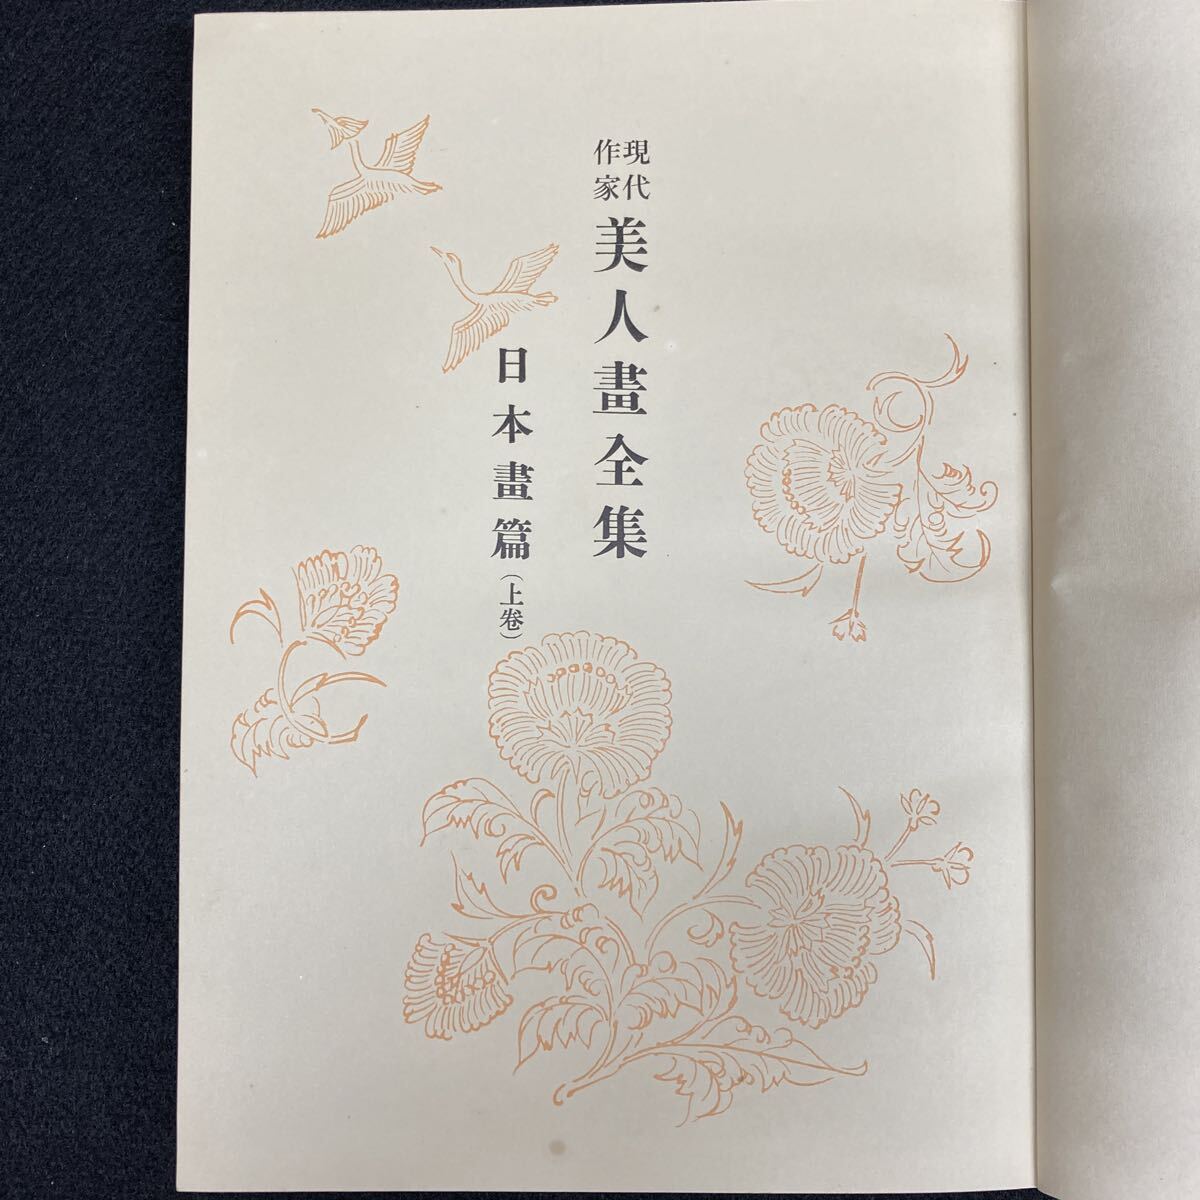 現代
作家
美人畫全集
日本畫篇(上卷)